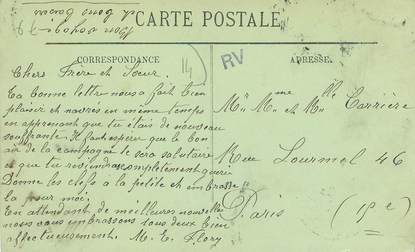 Bon voyage
et bons baisers
CARTE POSTALE
CORRESPONDANCE
ADRESSE.
14
RV
Chers Frère et Sœur.
Ta bonne lettre nous a fait bien
plaisir et navrés en même temps
en apprenant que tu étais de nouveau
souffrante. Il faut espérer que le bon
air de la campagne te sera salutaire
et que tu reviendras complètement guérie
Donne les clefs à la petite et embrasse
la pour moi.
En attendant de meilleures nouvelles
nous vous embrassons tous deux bien
affectueusement. M. E. Flory
Mr Mme et Mlle Carrière
Rue Lourmel 46
Paris (15e)